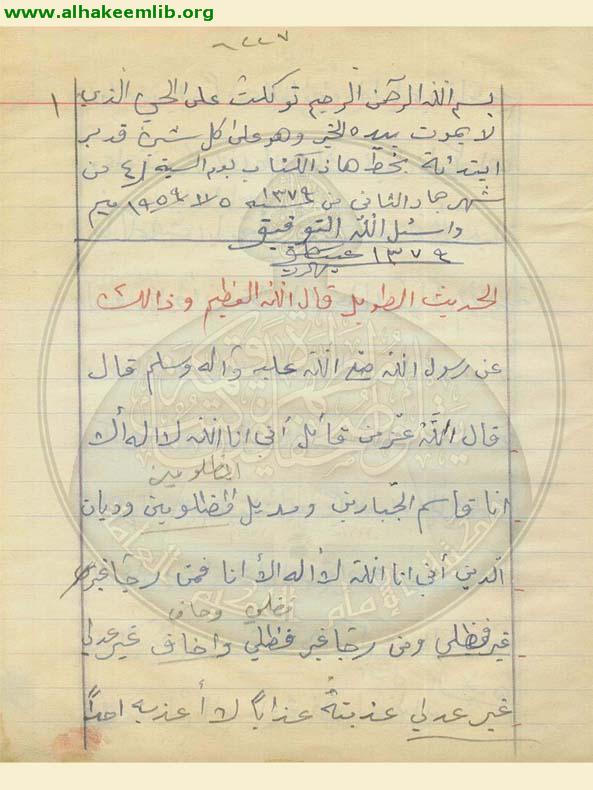 www.alhakeemlib.org
٨٢٢٧
بسم الله الرحمن الرحيم توكلت على الحي الذي
١
لا يموت بيده الخير وهو على كل شيئ قدير
ابتدئة بخط هاذا الكتاب يوم السبة ٤ من
شهر جماد الثاني من سنه ١٣٧٩ ٥ لا ١٩٥٩ ميم
واسئل الله التوفيق
١٣٧٩
الحديث الطويل قال الله العظيم وذالك
عن رسول الله صلى الله عليه وآله وسلم قال
قال الله عز من قائل أني انا الله لا اله ألا
المظلومين
انا قاسم الجبارين ومديل المضلومين وديان
الدين أني انا الله لا أله الأ أنا فمن رجا غير
فضلي وخاف
غير فظلي ومن رجا غير فظلي واخاف غير عدلي
غير عدلي عذبتهُ عذاباً لا أعذبه احداً